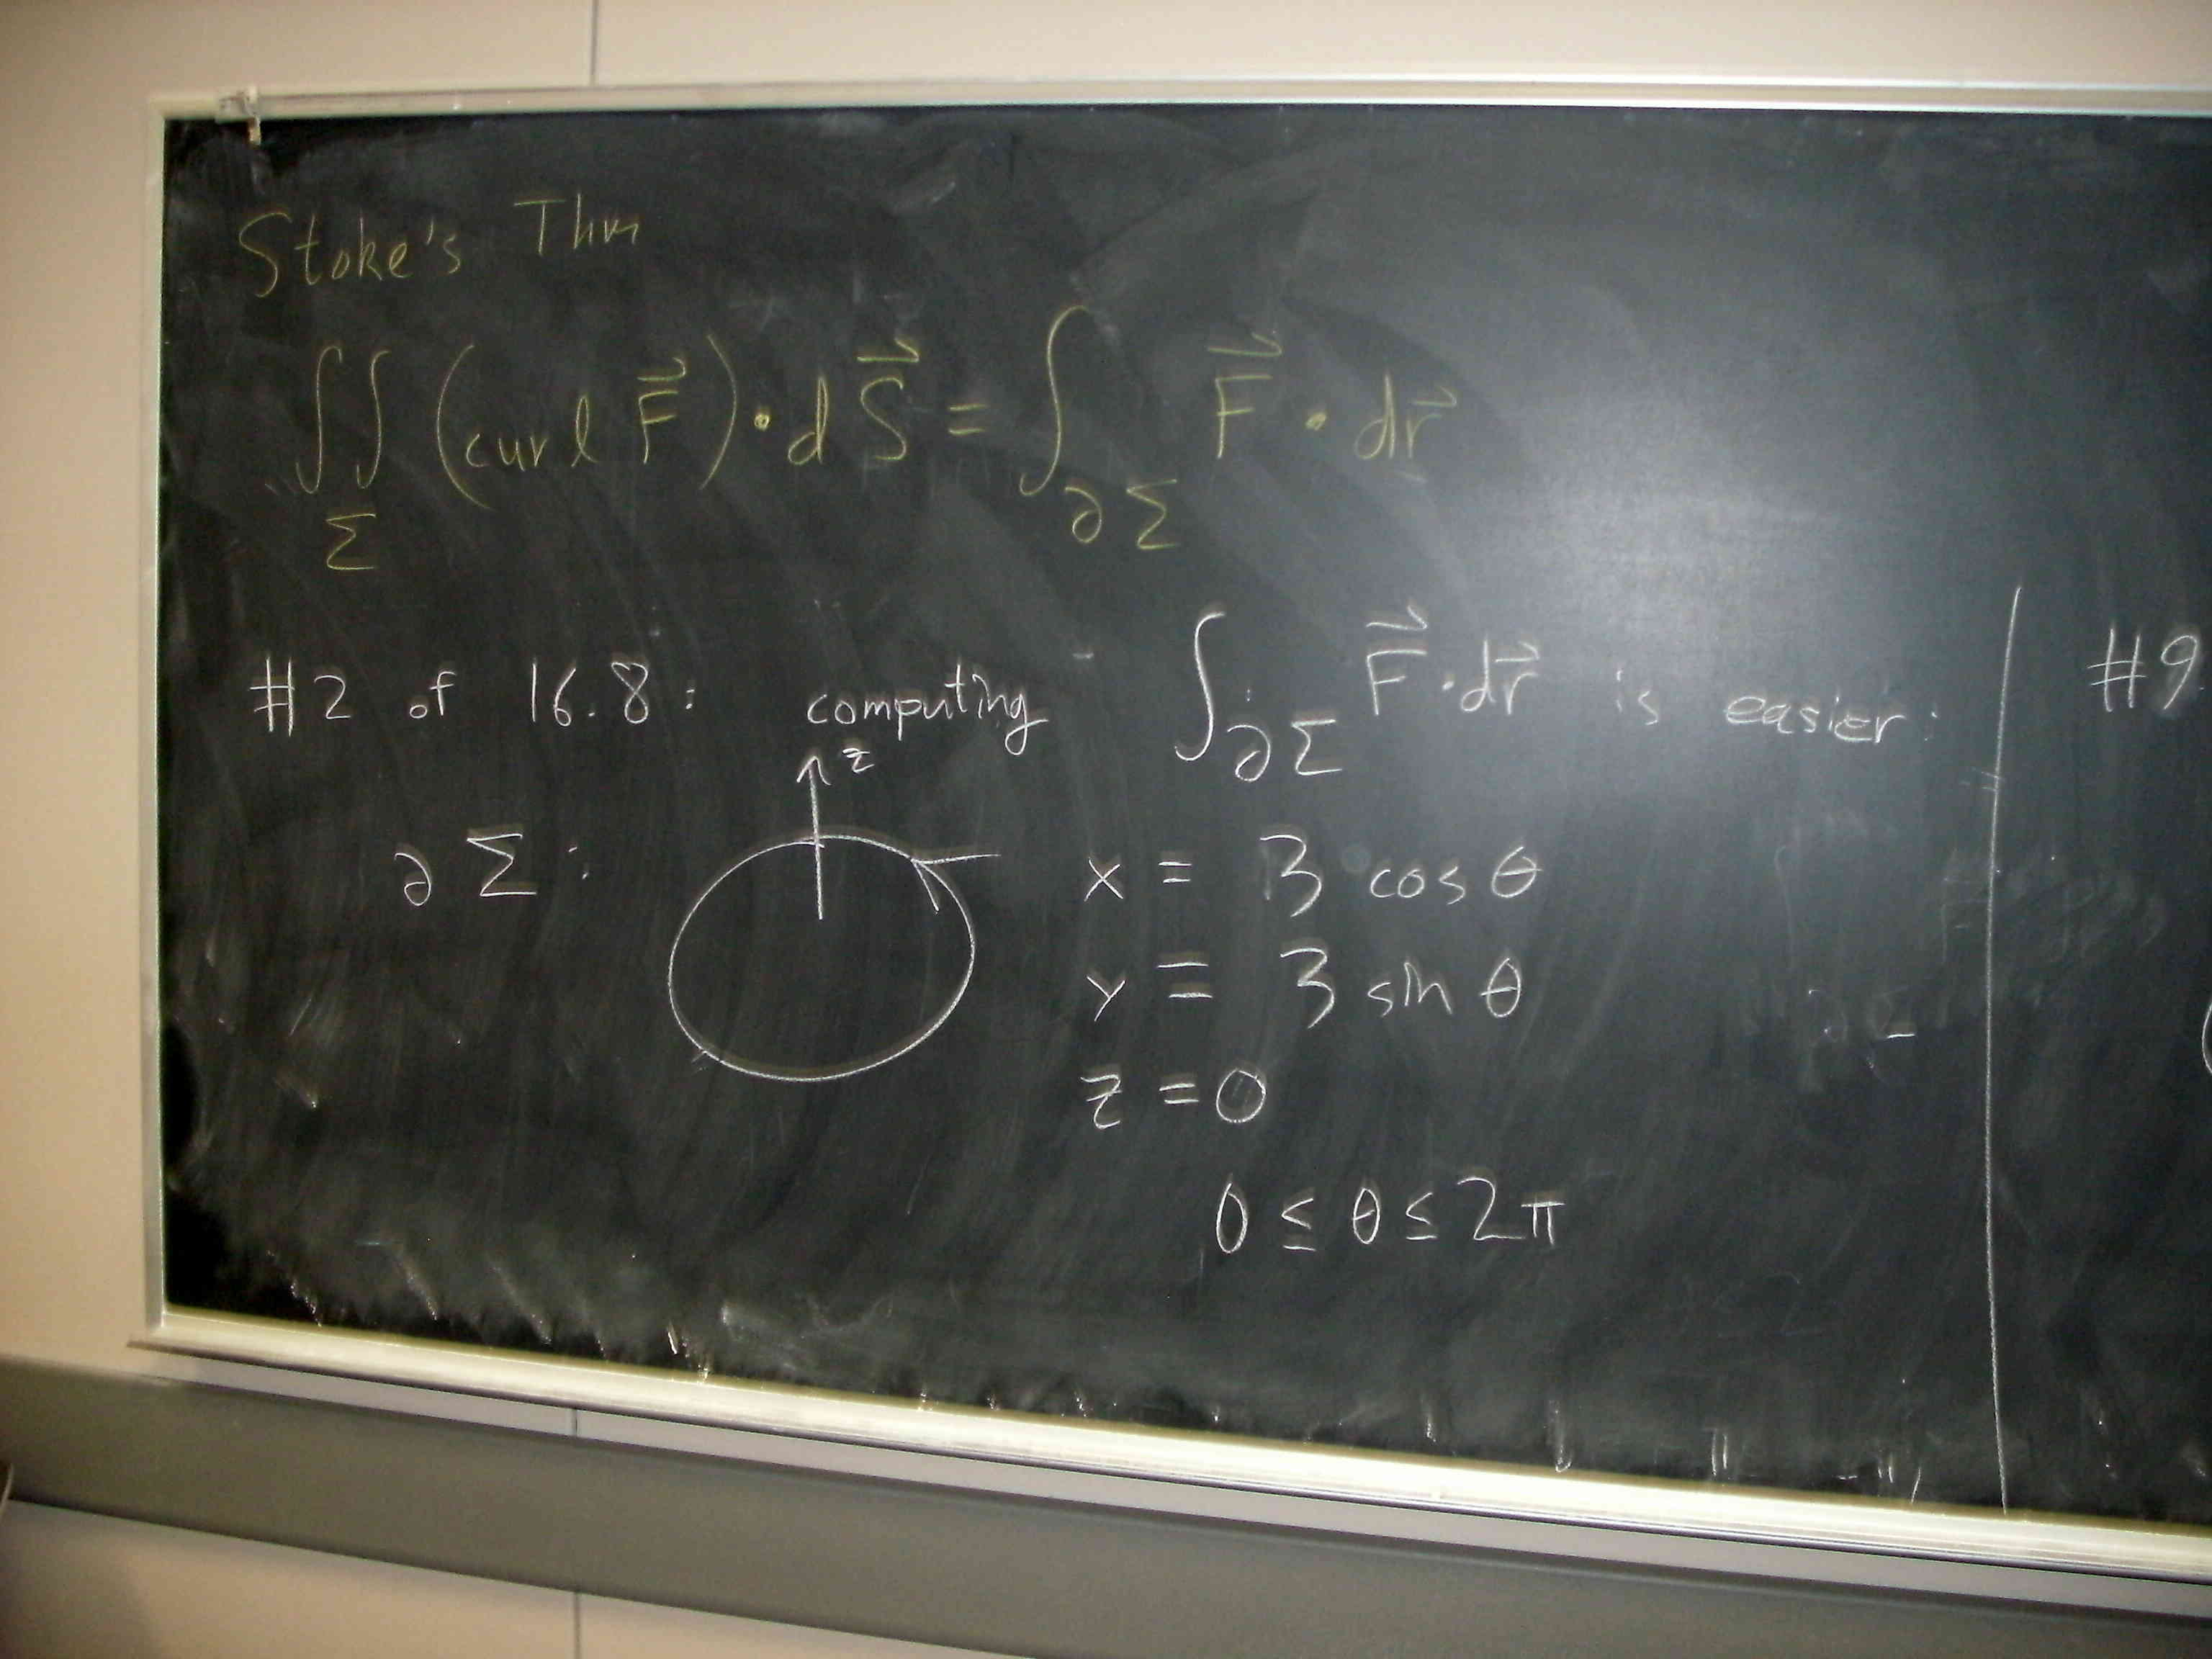 Stoke's Thm
∬_Σ (curl F⃗) · d S⃗ = ∫_∂Σ F⃗ · dr⃗
#2 of 16.8: computing ∫_∂Σ F⃗ · dr⃗ is easier:
z
∂Σ:
x = 3 cos θ
y = 3 sin θ
z = 0
0 ≤ θ ≤ 2π
#9